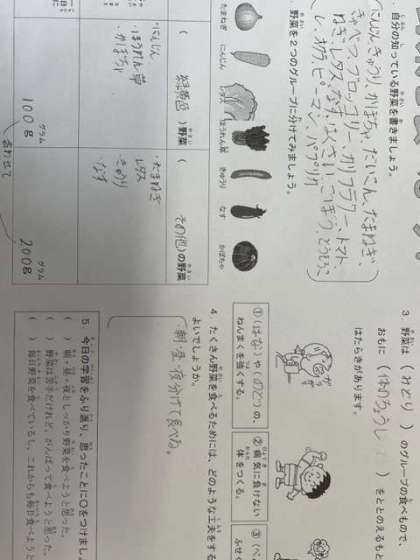 自分の知っている野菜を書きましょう。
にんじん、きゅうり、かぼちゃ、だいこん、たまねぎ、
きゃべつ、ブロッコリー、カリフラワー、トマト、
ねぎ、レタス、なす、はくさい、ごぼう、とうもろこ
し、オクラ、ピーマン、パプリカ
野菜を2つのグループに分けてみましょう。
たまねぎ
にんじん
レタス
ほうれん草
きゅうり
なす
かぼちゃ
(緑黄色)野菜
(その他)の野菜
・にんじん
・ほうれん草
・かぼちゃ
・たまねぎ
・レタス
・きゅうり
・なす
100g
グラム
200g
グラム
合わせて
3 野菜は(みどり)のグループの食べもので、
おもに(体のちょうし)をととのえる
はたらきがあります。
①(はな)や(のど)の、
ねんまくを強くする。
②病気に負けない
体をつくる。
③
ふせぐ
4. たくさん野菜を食べるためには、どのような工夫をする
よいでしょうか。
朝・昼・夜分けて食べる。
5 今日の学習をふり返り、思ったことに○をつけましょ
( )朝・昼・夜としっかり野菜を食べようと思った。
( )野菜は苦手だけれど、がんばって食べようと思った。
( )毎日野菜を食べているし、これからも毎日食べよう